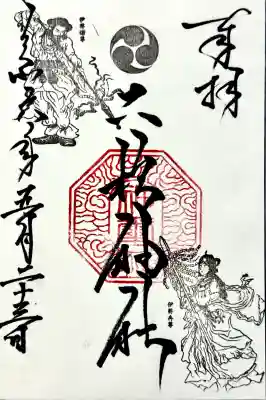 奉拝
六 神社
令和六年五月二十三日
伊弉諾尊
伊弉冉尊